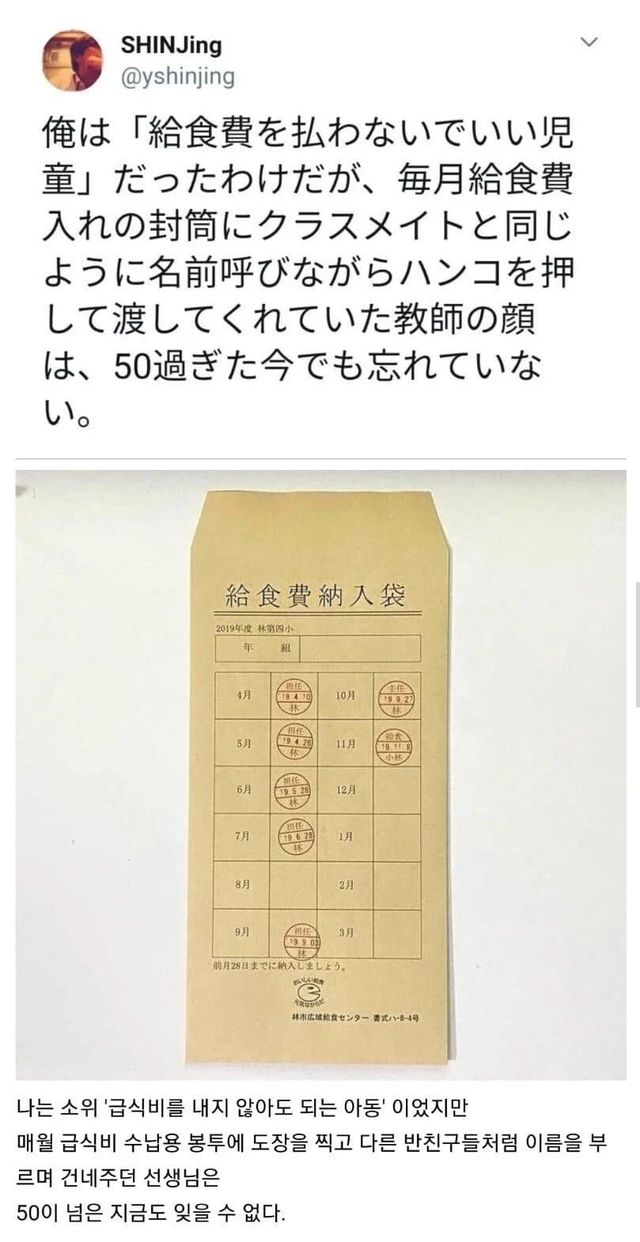 SHINJing
@yshinjing
俺は「給食費を払わないでいい児
童」だったわけだが、毎月給食費
入れの封筒にクラスメイトと同じ
ように名前呼びながらハンコを押
して渡してくれていた教師の顔
は、50過ぎた今でも忘れていな
い。
給食費納入袋
2019年度 林第四小
年 組
4月 担任 '19.4.10 林 10月 主任 '19.9.27 林
5月 担任 '19.4.26 林 11月 給食 '19.11.8 小林
6月 担任 '19.5.28 林 12月
7月 担任 '19.6.28 林 1月
8月 2月
9月 担任 '19.9.03 林 3月
前月28日までに納入しましょう。
おいしい給食
元気なからだ
林市広域給食センター 書式ハ-8-4号
나는 소위 '급식비를 내지 않아도 되는 아동' 이었지만
매월 급식비 수납용 봉투에 도장을 찍고 다른 반친구들처럼 이름을 부
르며 건네주던 선생님은
50이 넘은 지금도 잊을 수 없다.